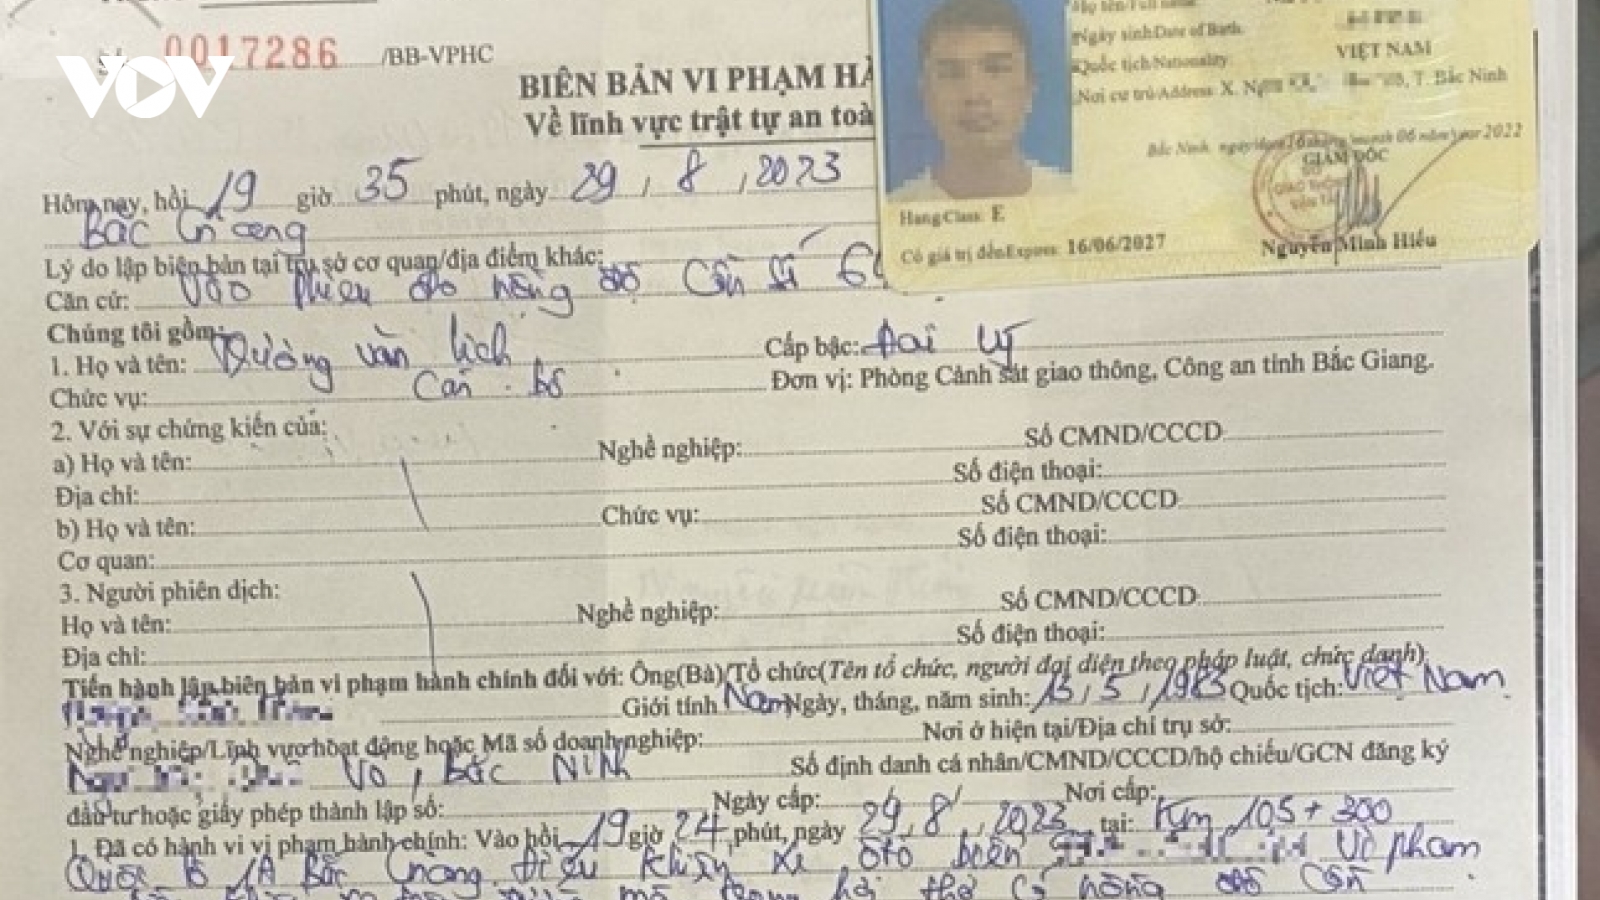 VOV
0017286 /BB-VPHC
BIÊN BẢN VI PHẠM HÀ
Về lĩnh vực trật tự an toà
Họ tên/Full name
Ngày sinh/Date of Birth
Quốc tịch/Nationality: VIỆT NAM
Nơi cư trú/Address: X. T. Bắc Ninh
Bắc Ninh, ngày/date 16 tháng/month 06 năm/year 2022
GIÁM ĐỐC
SỞ
GIAO THÔNG
VẬN TẢI
Nguyễn Minh Hiếu
Hạng/Class: E
Có giá trị đến/Expires: 16/06/2027
Hôm nay, hồi 19 giờ 35 phút, ngày 29 / 8 / 2023
Bắc Giang
Lý do lập biên bản tại trụ sở cơ quan/địa điểm khác:
Căn cứ: Vào phiếu đo nồng độ cồn số 6
Chúng tôi gồm:
1. Họ và tên: Dương Văn Lịch Cấp bậc: Đại uý
Chức vụ: Cán bộ Đơn vị: Phòng Cảnh sát giao thông, Công an tỉnh Bắc Giang.
2. Với sự chứng kiến của:
a) Họ và tên: Nghề nghiệp: Số CMND/CCCD
Địa chỉ: Số điện thoại:
b) Họ và tên: Chức vụ: Số CMND/CCCD
Cơ quan: Số điện thoại:
3. Người phiên dịch:
Họ và tên: Nghề nghiệp: Số CMND/CCCD
Địa chỉ: Số điện thoại:
Tiến hành lập biên bản vi phạm hành chính đối với: Ông(Bà)/Tổ chức(Tên tổ chức, người đại diện theo pháp luật, chức danh):
Giới tính Nam Ngày, tháng, năm sinh: 13 / 5 / 1983 Quốc tịch: Việt Nam
Nghề nghiệp/Lĩnh vực hoạt động hoặc Mã số doanh nghiệp: Nơi ở hiện tại/Địa chỉ trụ sở:
Võ, Bắc Ninh Số định danh cá nhân/CMND/CCCD/hộ chiếu/GCN đăng ký
đầu tư hoặc giấy phép thành lập số: Ngày cấp: / / Nơi cấp:
1. Đã có hành vi vi phạm hành chính: Vào hồi 19 giờ 24 phút, ngày 29 / 8 / 2023 tại: Km 105 + 300
Quốc lộ 1A Bắc Giang, Điều khiển xe ôtô biển Vi phạm
trong hơi thở có nồng độ cồn